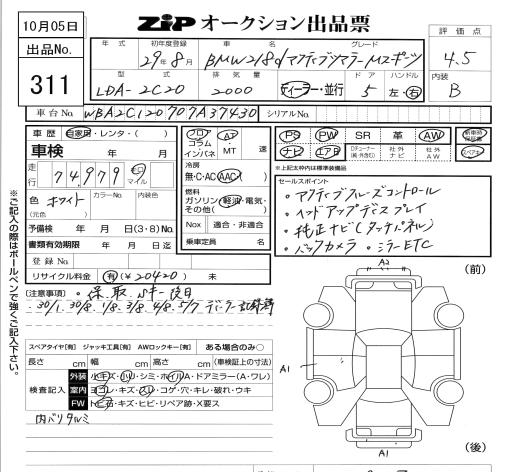 10月05日
ZiP オークション出品票
評価点
出品No.
311
年式 初年度登録 車名 グレード
29年8月 BMW218d アクティブツアラー Mスポーツ
4.5
型式 排気量 ドア ハンドル
内装
LDA-2C20 2000 ディーラー・並行 5 左・右
B
車台No. WBA2C120707A37430 シリアルNo.
車歴 自家用・レンタ・( )
フロア AT
コラム
インパネ MT 速
PS PW SR 革 AW
ナビ エアB 社外ナビ 社外AW
車検 年 月
冷房
無・C・AC AAC
走行 74,979 キロ マイル
セールスポイント
燃料
ガソリン・軽油・電気・
その他( )
・アクティブクルーズコントロール
色 ホワイト カラーNo. 内装色
(元色)
・ヘッドアップディスプレイ
予備検 年 月 日(3・8)No.
Nox 適合・非適合
・純正ナビ(タッチパネル)
書類有効期限 年 月 日迄
乗車定員 名
・バックカメラ ・ミラーETC
登録No.
リサイクル料金 有(¥20420) 未
(前)
A2
(注意事項) ・保、取、Nキー後日
・30/1. 30/8. 1/8. 3/8. 4/8. 5/7 ディーラー記録簿
スペアタイヤ[有] ジャッキ工具[有] AWロックキー[有] ある場合のみ○
長さ cm 幅 cm 高さ cm (車検証上の寸法)
A1
検査記入
外装 小キズ・小ソリ・シミ・ホイルA・ドアミラー(A・ワレ)
室内 ヨゴレ・キズ・スレ・コゲ・穴・キレ・破れ・ウキ
FW トビ石・キズ・ヒビ・リペア跡・X要ス
内バリタルミ
(後)
A1
※ご記入の際はボールペンで強くご記入下さい。